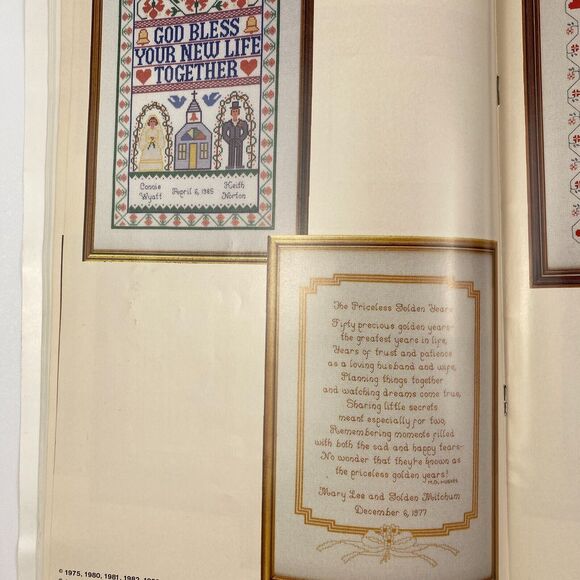 GOD BLESS
YOUR NEW LIFE
TOGETHER
Connie Wyatt
April 6, 1985
Keith Norton
The Priceless Golden Years
Fifty precious golden years-
the greatest years in life,
Years of trust and patience
as a loving husband and wife,
Planning things together
and watching dreams come true,
Sharing little secrets
meant especially for two,
Remembering moments filled
with both the sad and happy tears-
No wonder that they're known as
the priceless golden years!
M.D. HUGHES
Mary Lee and Golden Mitchum
December 6, 1977
© 1975, 1980, 1981, 1982,